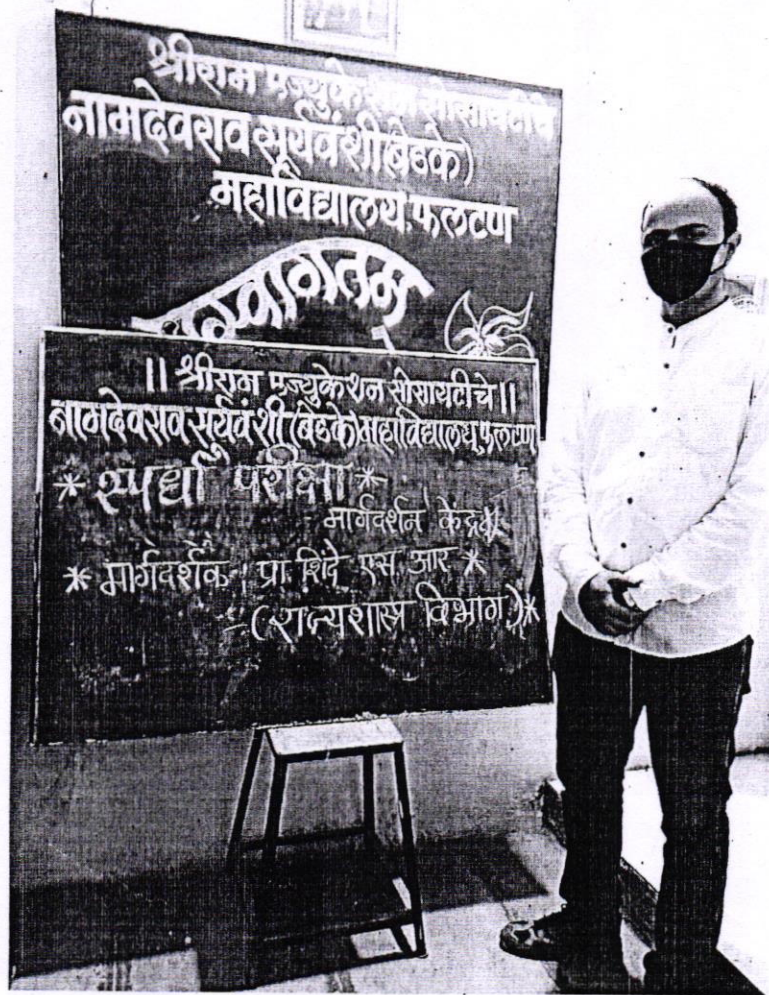 श्रीराम एज्युकेशन सोसायटीचे
नामदेवराव सूर्यवंशी(बेडके)
महाविद्यालय,फलटण
सुस्वागतम्
|| श्रीराम एज्युकेशन सोसायटीचे ||
नामदेवराव सूर्यवंशी (बेडके)महाविद्यालय,फलटण
* स्पर्धा परीक्षा *
मार्गदर्शन केंद्र*
* मार्गदर्शक : प्रा. शिंदे एस. आर *
- (राज्यशास्त्र विभाग)*